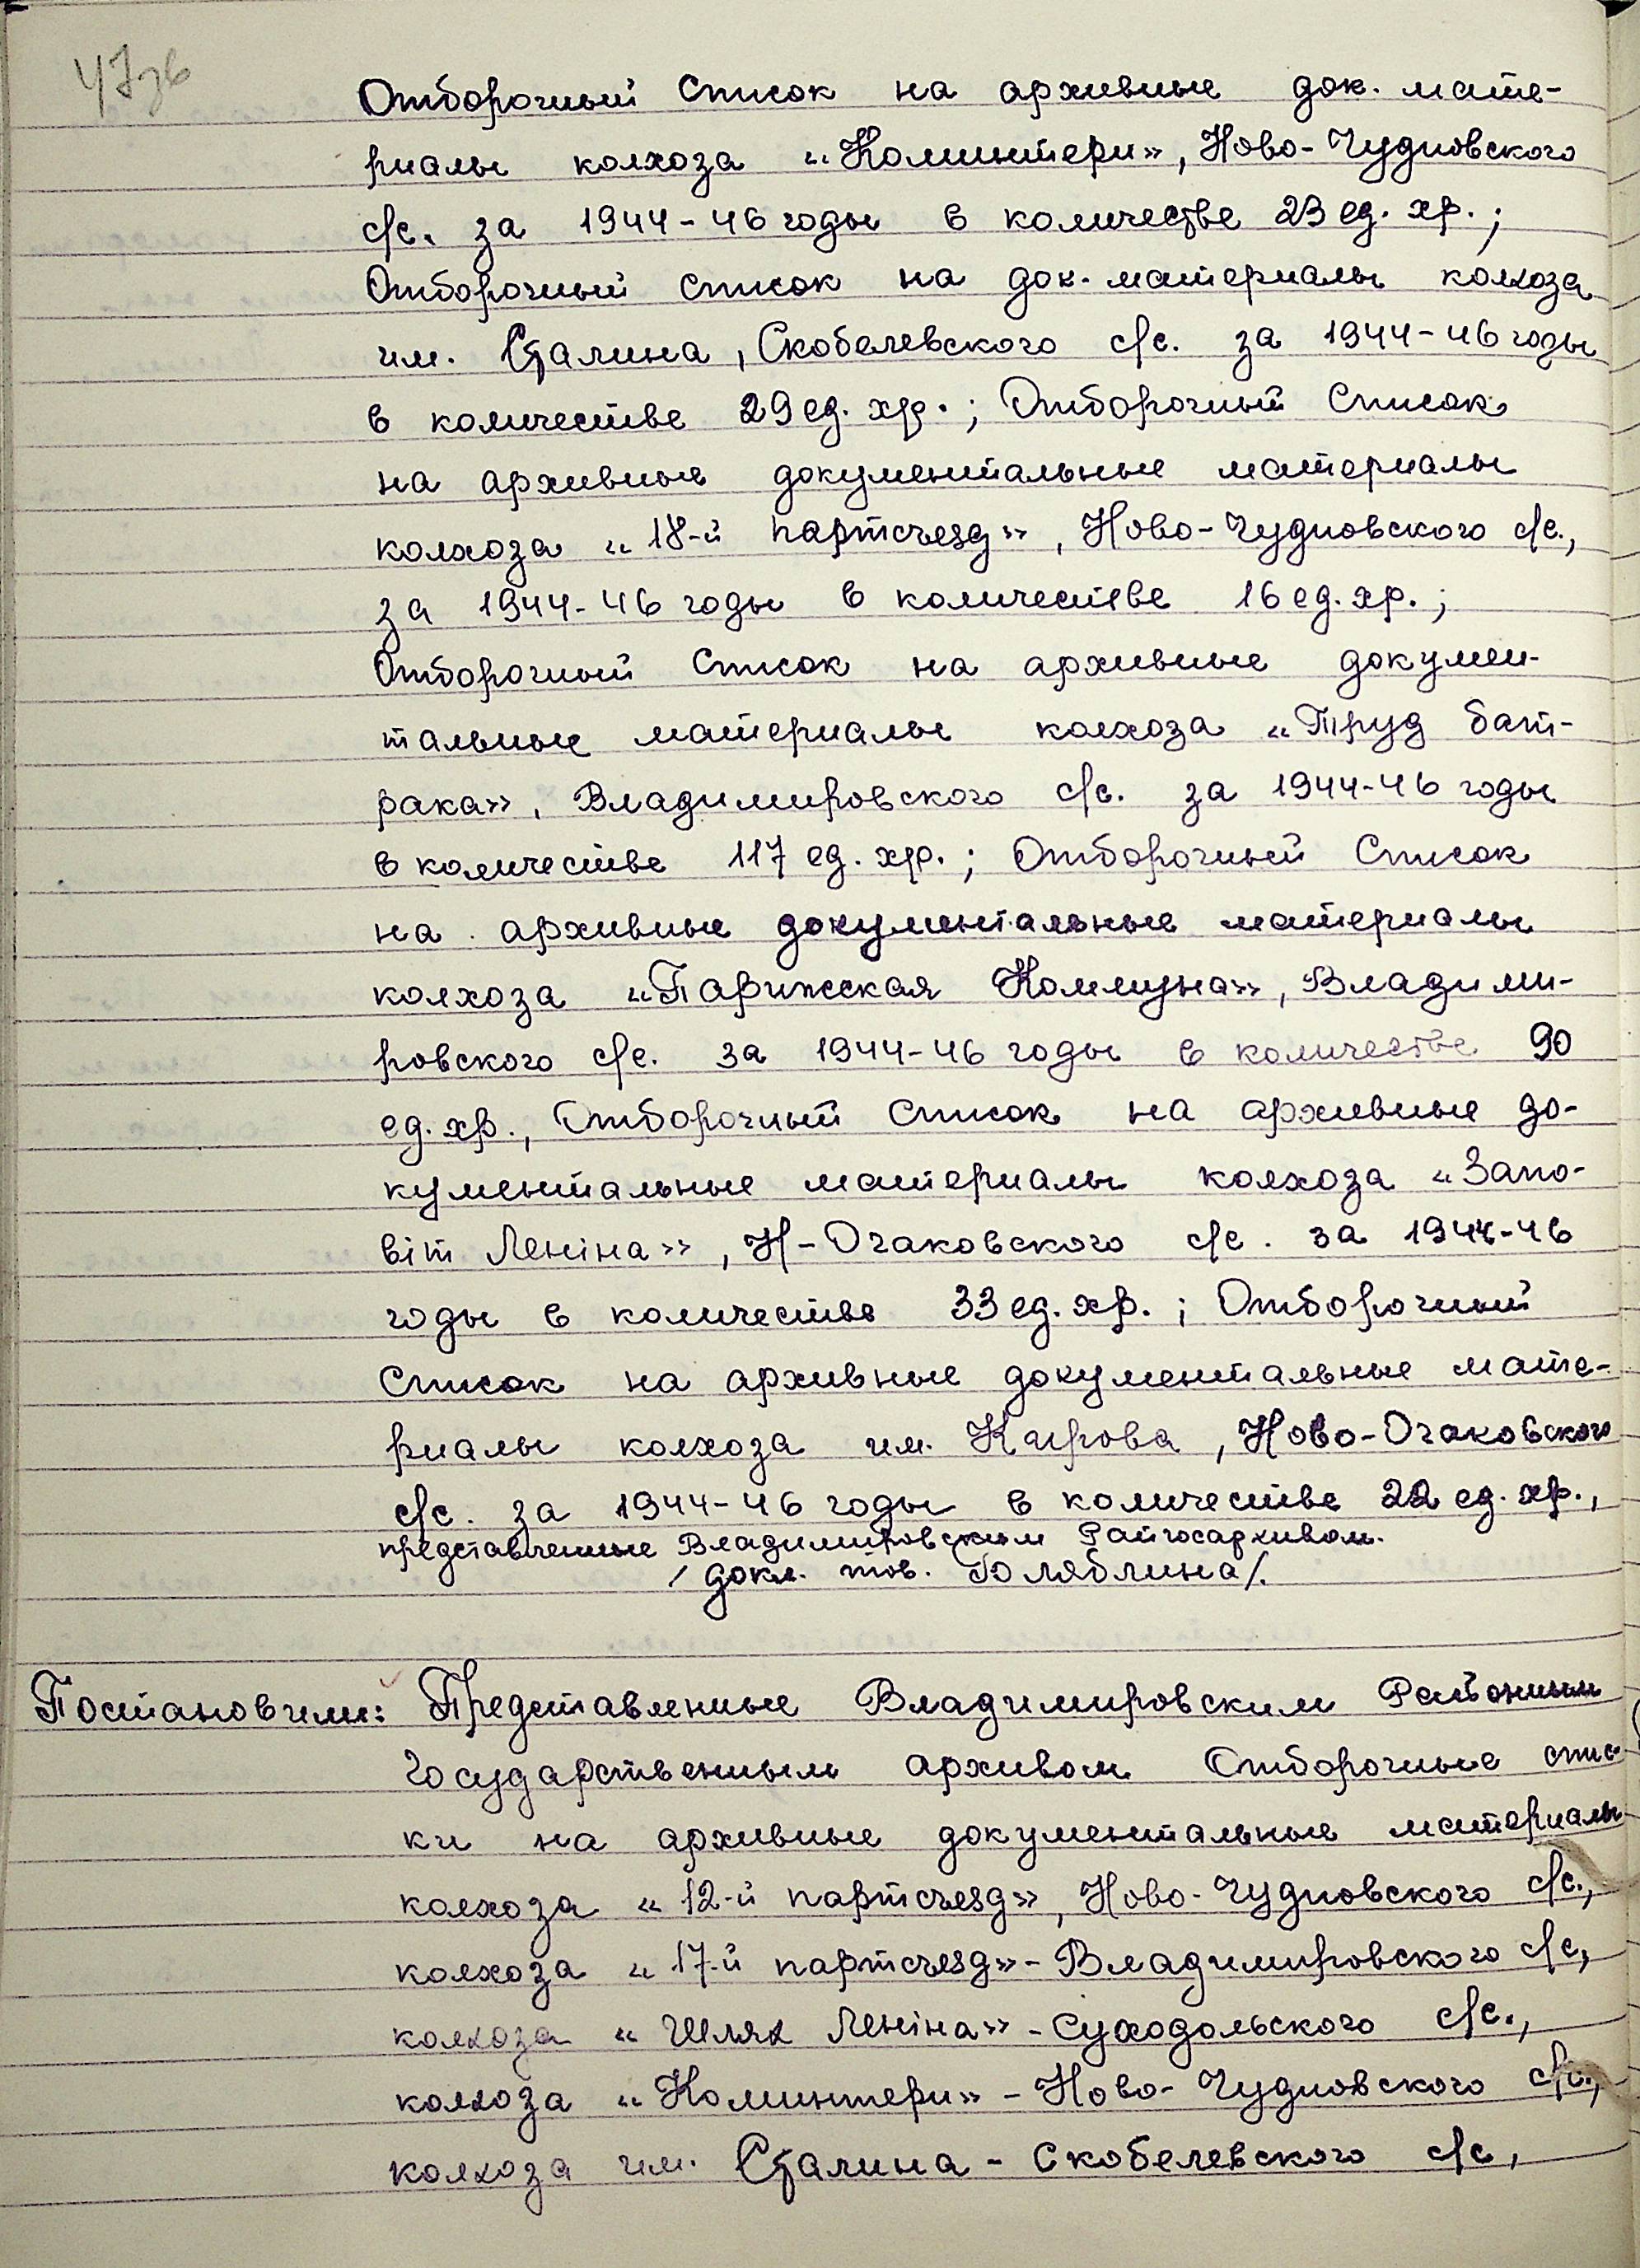 47зв
Отборочный Список на архивные док. мате-
риалы колхоза «Коминтерн», Ново-Чудновского
с/с. за 1944-46 годы в количестве 23 ед. хр.;
Отборочный список на док. материалы колхоза
им. Сталина, Скобелевского с/с. за 1944-46 годы
в количестве 29 ед. хр.; Отборочный Список
на архивные документальные материалы
колхоза «18-й партсъезд», Ново-Чудновского с/с.,
за 1944-46 годы в количестве 16 ед. хр.;
Отборочный Список на архивные докумен-
тальные материалы колхоза «Труд бат-
рака», Владимировского с/с. за 1944-46 годы
в количестве 117 ед. хр.; Отборочный Список
на архивные документальные материалы
колхоза «Парижская Коммуна», Владими-
ровского с/с. за 1944-46 годы в количестве 90
ед. хр., Отборочный Список на архивные до-
кументальные материалы колхоза «Запо-
віт Леніна», Н-Очаковского с/с. за 1944-46
годы в количестве 33 ед. хр.; Отборочный
Список на архивные документальные мате-
риалы колхоза им. Кирова, Ново-Очаковского
с/с. за 1944-46 годы в количестве 22 ед. хр.,
представленные Владимировским Райгосархивом.
/докл. тов. /.
Постановили: Представленные Владимировским Районным
Государственным архивом Отборочные спис-
ки на архивные документальные материалы
колхоза «12-й партсъезд», Ново-Чудновского с/с.,
колхоза «17-й партсъезд» - Владимировского с/с,
колхоза «Шлях Леніна» - Суходольского с/с.,
колхоза «Коминтерн» - Ново-Чудновского с/с.,
колхоза им. Сталина - Скобелевского с/с,